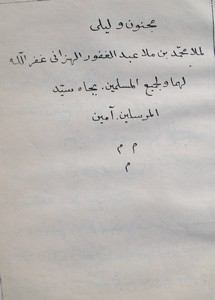 مجنون و ليلى
لملا محمّد بن ملا عبد الغفور الهزاني غفر الله
لهما ولجميع المسلمين. بجاه سيّد
المرسلين. آمين
م م
م